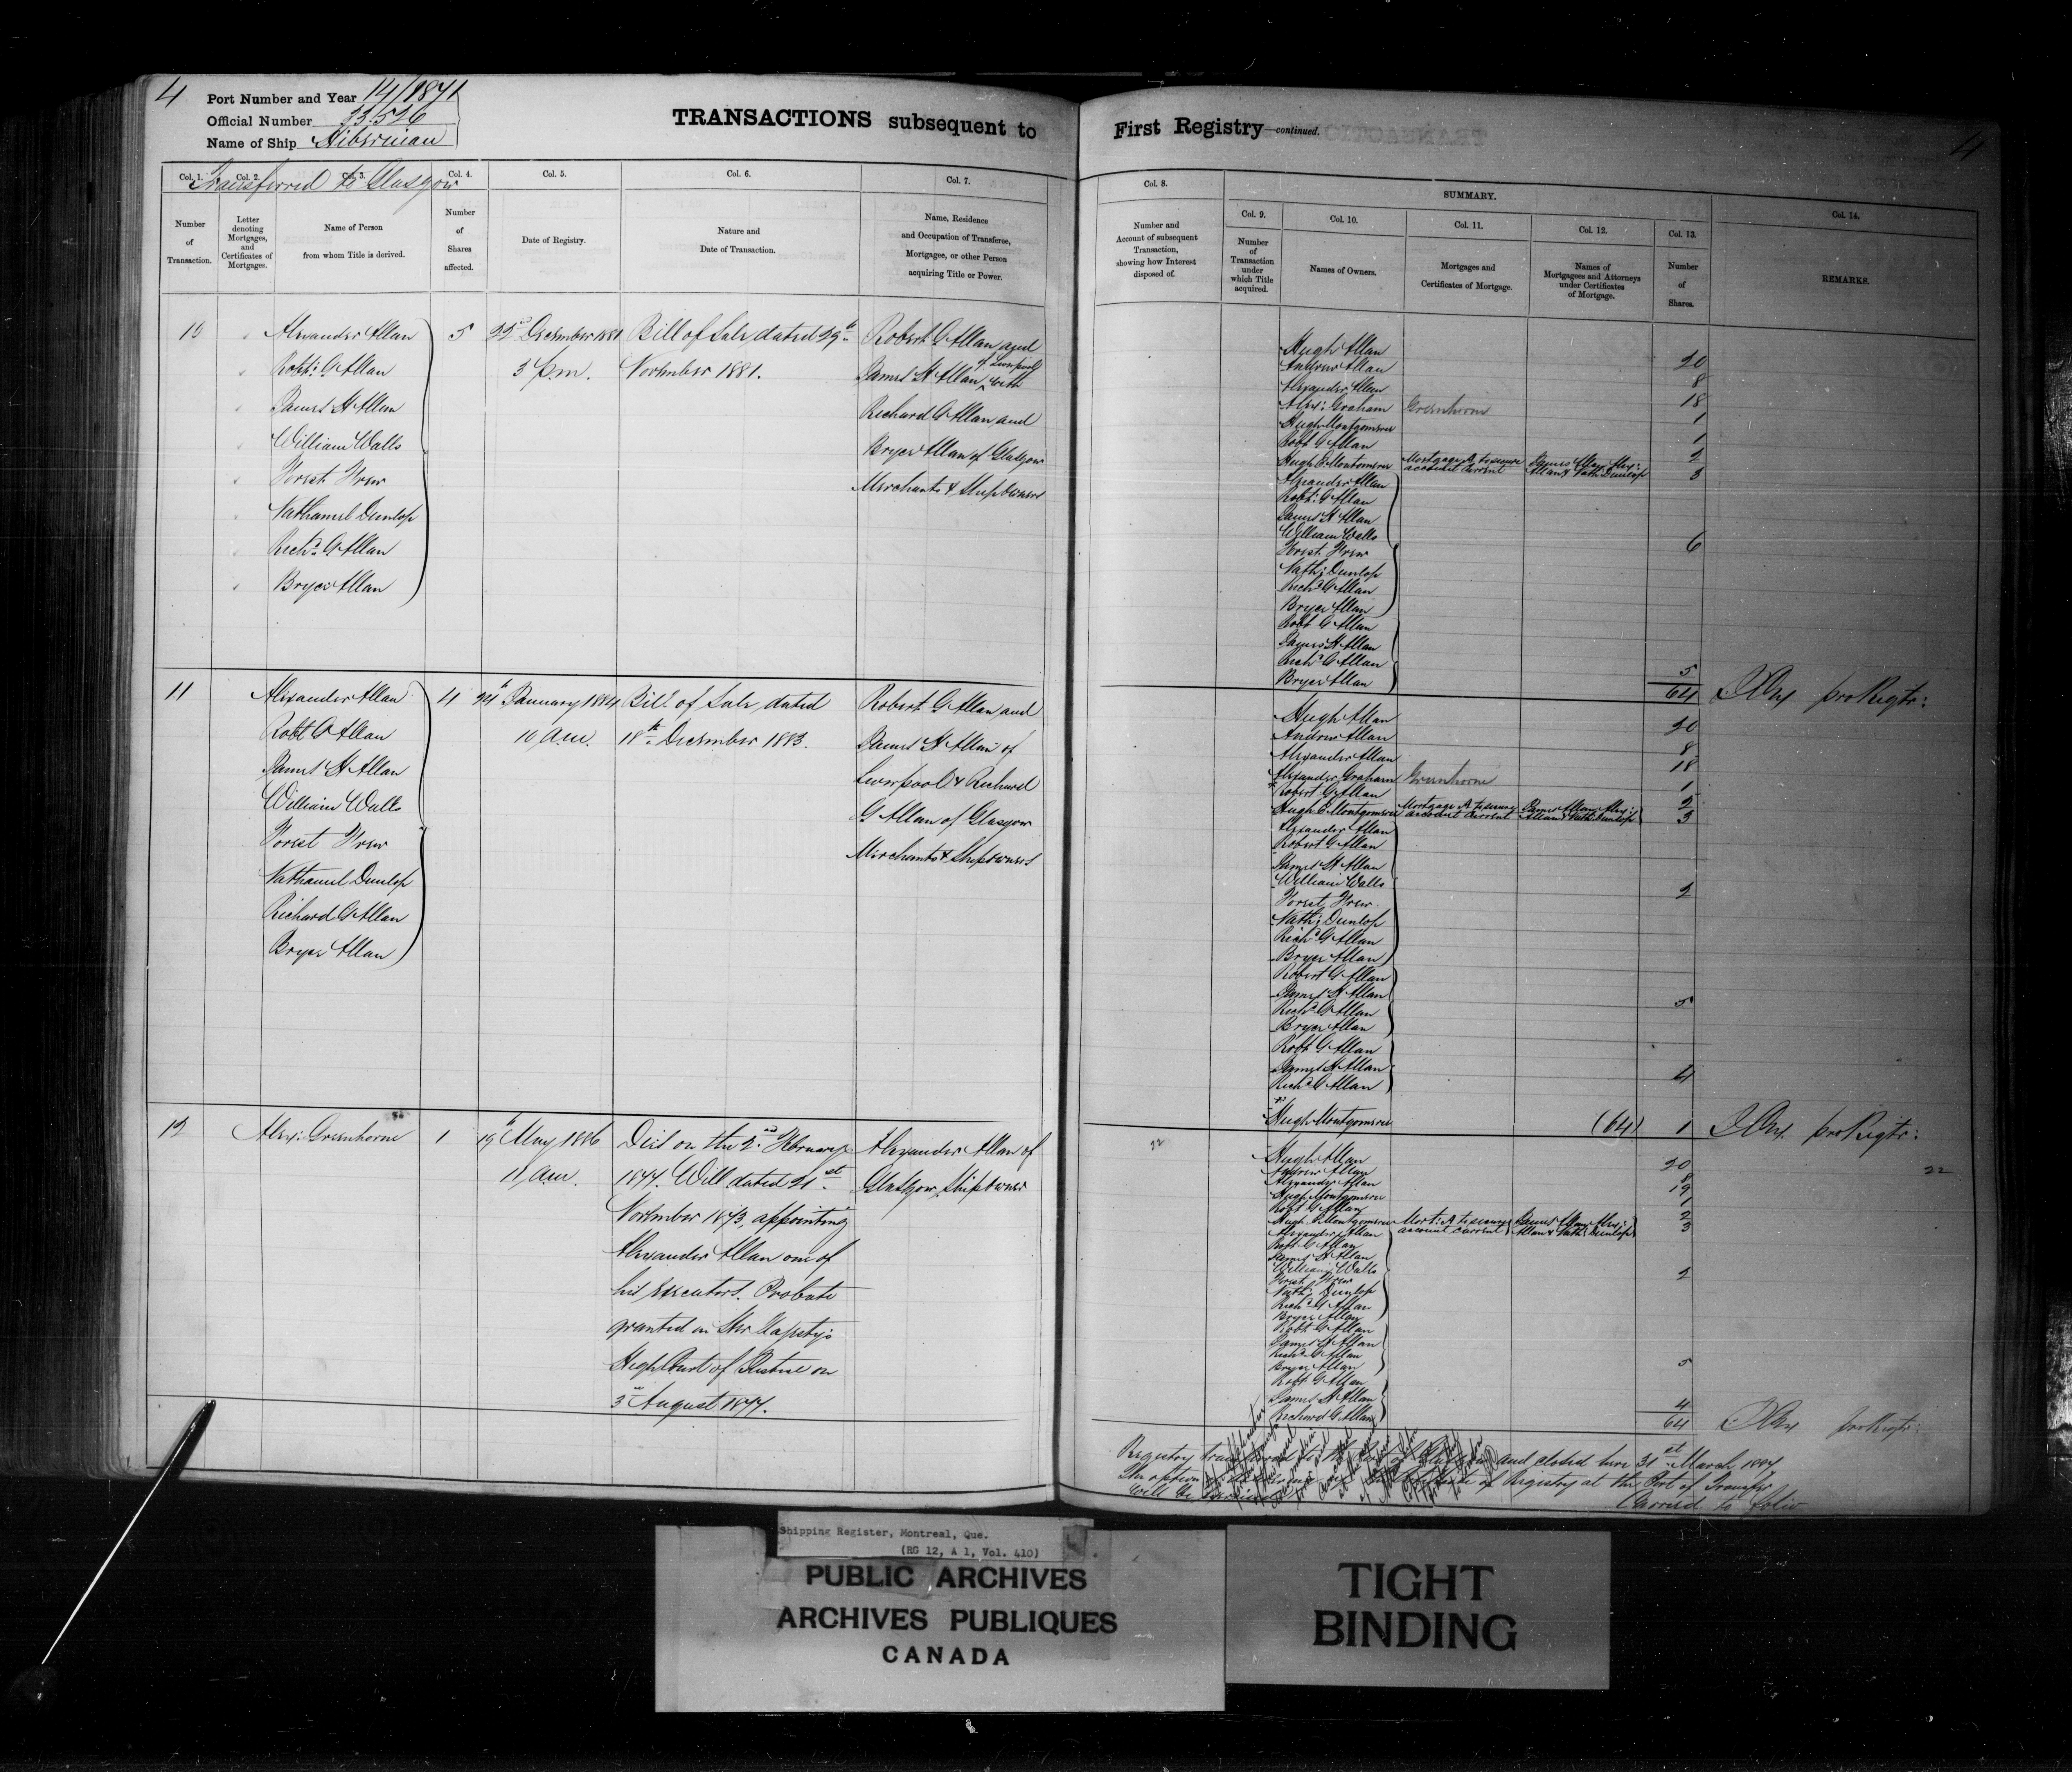 4
Port Number and Year 14/1871
Official Number 33.526
Name of Ship Hibernian
TRANSACTIONS subsequent to
Transferred to Glasgow
Col. 1. Col. 2. Col. 3. Col. 4. Col. 5. Col. 6. Col. 7.
Number of Transaction.
Letter denoting Mortgages, and Certificates of Mortgages.
Name of Person from whom Title is derived.
Number of Shares affected.
Date of Registry.
Nature and Date of Transaction.
Name, Residence and Occupation of Transferee, Mortgagee, or other Person acquiring Title or Power.
10 Alexander Allan 5 22nd December 1881 Bill of Sale dated 29th Robert G Allan and
Robt: G Allan 3 p.m. November 1881. James H Allan of Liverpool with
James H Allan Richard G Allan and
William Walls Bryce Allan of Glasgow
Forest Frew Merchants & Shipowners
Nathaniel Dunlop
Richd G Allan
Bryce Allan
11 Alexander Allan 4 24th January 1884 Bill of Sale, dated Robert G Allan and
Robt G Allan 10 a.m. 18th December 1883. James H Allan of
James H Allan Liverpool & Richard
William Walls G Allan of Glasgow
Forest Frew Merchants & Shipowners
Nathaniel Dunlop
Richard G Allan
Bryce Allan
12 Alex: Greenhorne 1 19th May 1886 Died on the 2nd February Alexander Allan of
11 a.m. 1877. Will dated 21st Glasgow, Shipowner
November 1873, appointing
Alexander Allan one of
his executors. Probate
granted in Her Majesty's
High Court of Justice on
3rd August 1877.
First Registry—continued.
4
Col. 8.
Number and Account of subsequent Transaction, showing how Interest disposed of.
SUMMARY.
Col. 9. Col. 10. Col. 11. Col. 12. Col. 13. Col. 14.
Number of Transaction under which Title acquired.
Names of Owners.
Mortgages and Certificates of Mortgage.
Names of Mortgagees and Attorneys under Certificates of Mortgage.
Number of Shares.
REMARKS.
Hugh Allan 20
Andrew Allan 8
Alexander Allan 18
Alex: Graham Greenhorne 1
Hugh Montgomerie 1
Robt G Allan 2
Hugh E Montgomerie Mortgage A to secure account current James Allan, Alex: Allan & Nath: Dunlop 3
Alexander Allan
Robt: G Allan
James H Allan
William Walls
Forest Frew 6
Nath: Dunlop
Richd G Allan
Bryce Allan
Robt G Allan
James H Allan
Richd G Allan
Bryce Allan 5
64 pro Regtr:
Hugh Allan 20
Andrew Allan 8
Alexander Allan 18
Alexander Graham Greenhorne 1
Robert G Allan 2
Hugh E Montgomerie Mortgage A to secure account current James Allan, Alex: Allan & Nath: Dunlop 3
Alexander Allan
Robert G Allan
James H Allan
William Walls 2
Forest Frew
Nath: Dunlop
Richd G Allan
Bryce Allan
Robert G Allan
James H Allan 5
Richd G Allan
Bryce Allan
Robt G Allan
James H Allan 4
Richd G Allan
Hugh Montgomerie (64) 1 pro Regtr:
22
Hugh Allan 20
Andrew Allan 8
Alexander Allan 19
Hugh Montgomerie 1
Robt G Allan 2
Hugh E Montgomerie Mort: A to secure account current James Allan, Alex: Allan & Nath: Dunlop 3
Alexander Allan
Robt G Allan
James H Allan
William Walls 2
Forest Frew
Nath: Dunlop
Richd G Allan
Bryce Allan
Robt G Allan
James H Allan
Richd G Allan
Bryce Allan 5
Robt G Allan
James H Allan 4
Richard G Allan 64 pro Regtr:
Registry transferred to the Port of Glasgow and closed here 31st March 1887
of Registry at the Port of Transfer
will be
Carried to folio
Shipping Register, Montreal, Que.
(RG 12, A 1, Vol. 410)
PUBLIC ARCHIVES
ARCHIVES PUBLIQUES
CANADA
TIGHT
BINDING